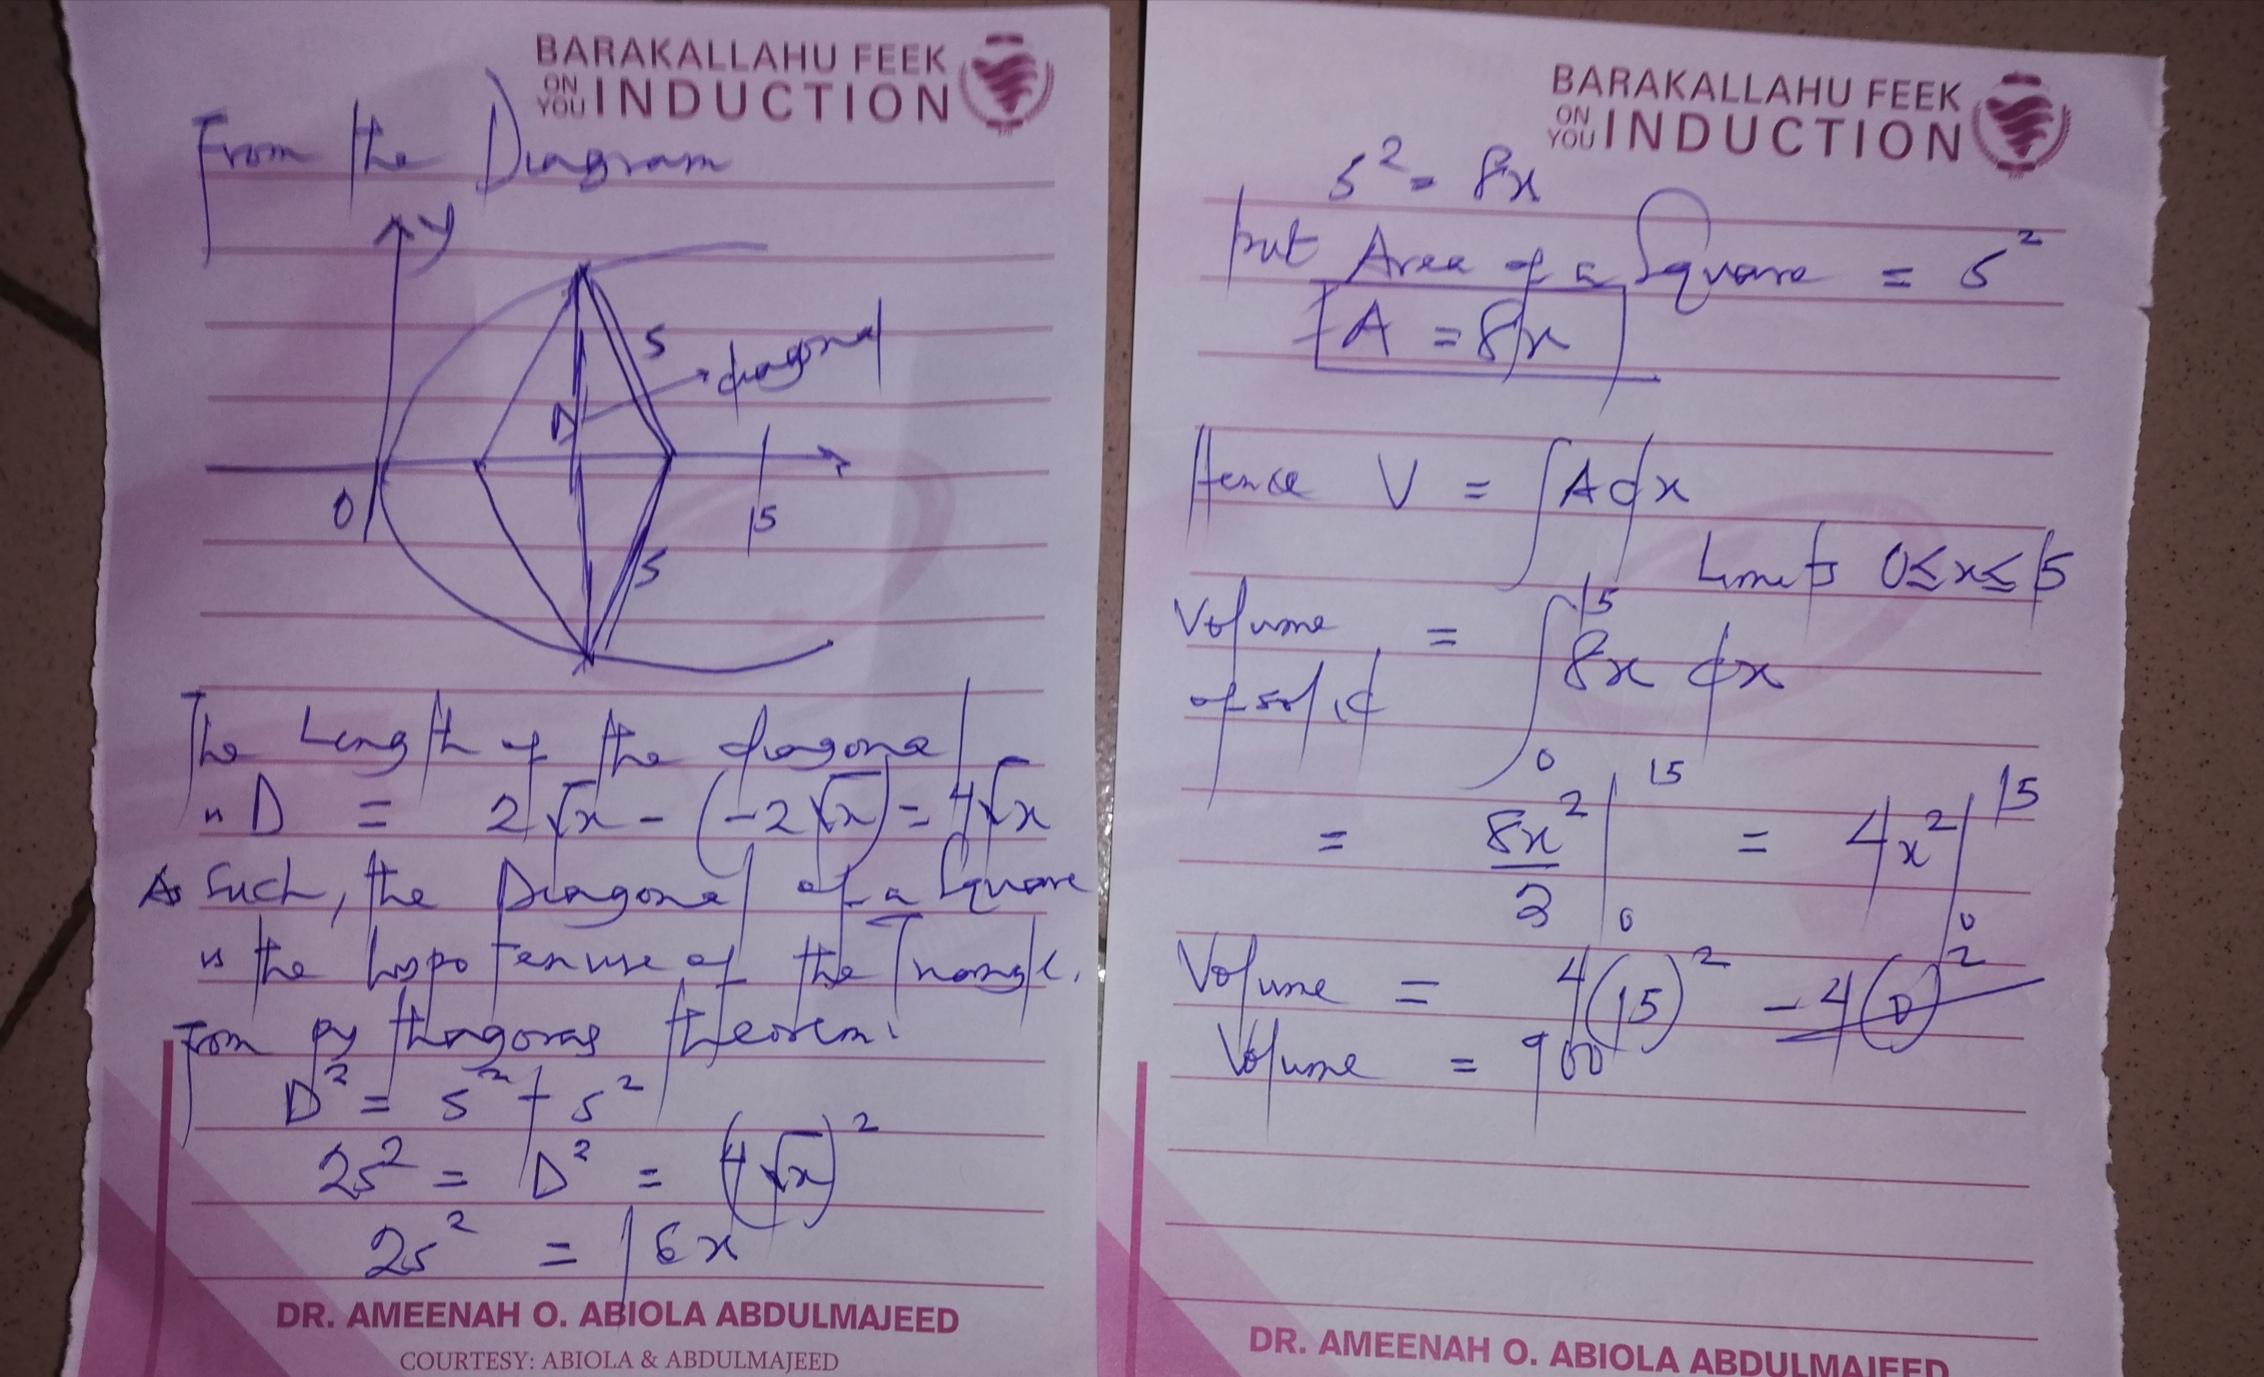 BARAKALLAHU FEEK
ON YOU INDUCTION
From the Diagram
y
S
diagonal
D
0
15
S
The Length of the diagonal
is D = 2√x - (-2√x) = 4√x
As Such, the Diagonal of a Square
is the hypotenuse of the Triangle.
From pythagoras theorem:
D² = s² + s²
2s² = D² = (4√x)²
2s² = 16x
DR. AMEENAH O. ABIOLA ABDULMAJEED
COURTESY: ABIOLA & ABDULMAJEED
BARAKALLAHU FEEK
ON YOU INDUCTION
s² = 8x
but Area of a Square = s²
A = 8x
Hence V = ∫A dx
Limits 0≤x≤15
Volume of solid = ∫₀¹⁵ 8x dx
= 8x²/2 |₀¹⁵ = 4x² |₀¹⁵
Volume = 4(15)² - 4(0)²
Volume = 900
DR. AMEENAH O. ABIOLA ABDULMAJEED